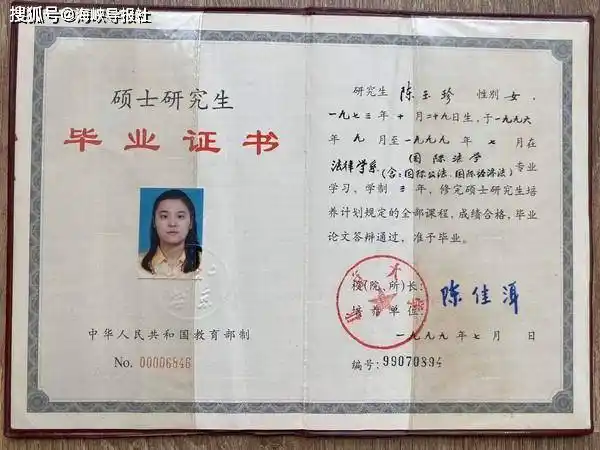 搜狐号@海峡导报社
硕士研究生
毕业证书
中华人民共和国教育部制
No. 00006846
研究生 陈玉珍 性别 女，
一九七三年 十 月 二十九日生，于一九九六
年 九 月至一九九九年 七 月在
法律学系 国际法学
(含:国际公法、国际经济法) 专业
学习，学制 三 年，修完硕士研究生培
养计划规定的全部课程，成绩合格，毕业
论文答辩通过，准予毕业。
校(院、所)长:
陈佳洱
培养单位:
一九九九年七月 日
编号: 99070894